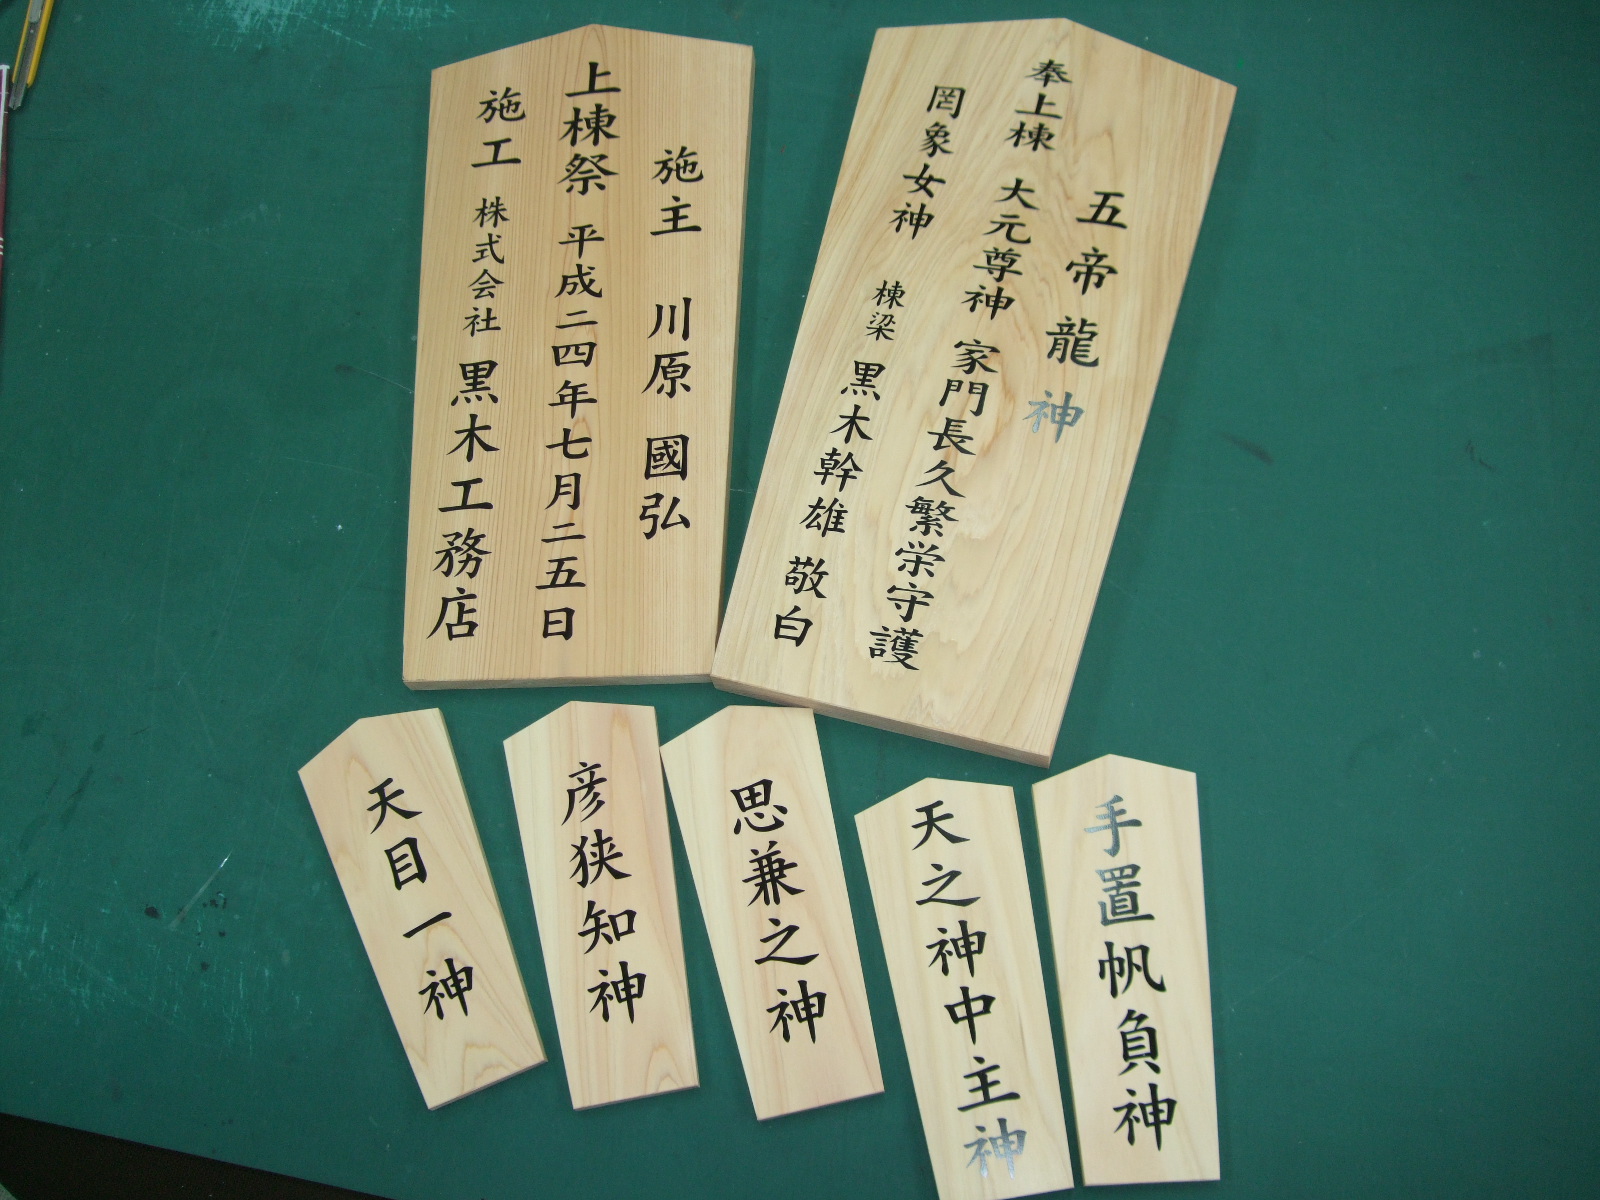 五帝龍神
奉上棟 大元尊神 家門長久繁栄守護
罔象女神 棟梁 黒木幹雄 敬白
施主 川原 國弘
上棟祭 平成二四年七月二五日
施工 株式会社 黒木工務店
手置帆負神
天之神中主神
思兼之神
彦狭知神
天目一神